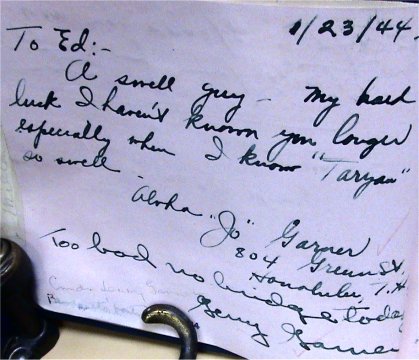 1/23/44.
To Ed:-
A swell guy - my hard
luck I haven't known you longer
especially when I know "Taryan"
so swell
Aloha "Jo" Garner
804 Green St.
Honolulu, T.H.
Too bad no bridge today
Gerry Garner